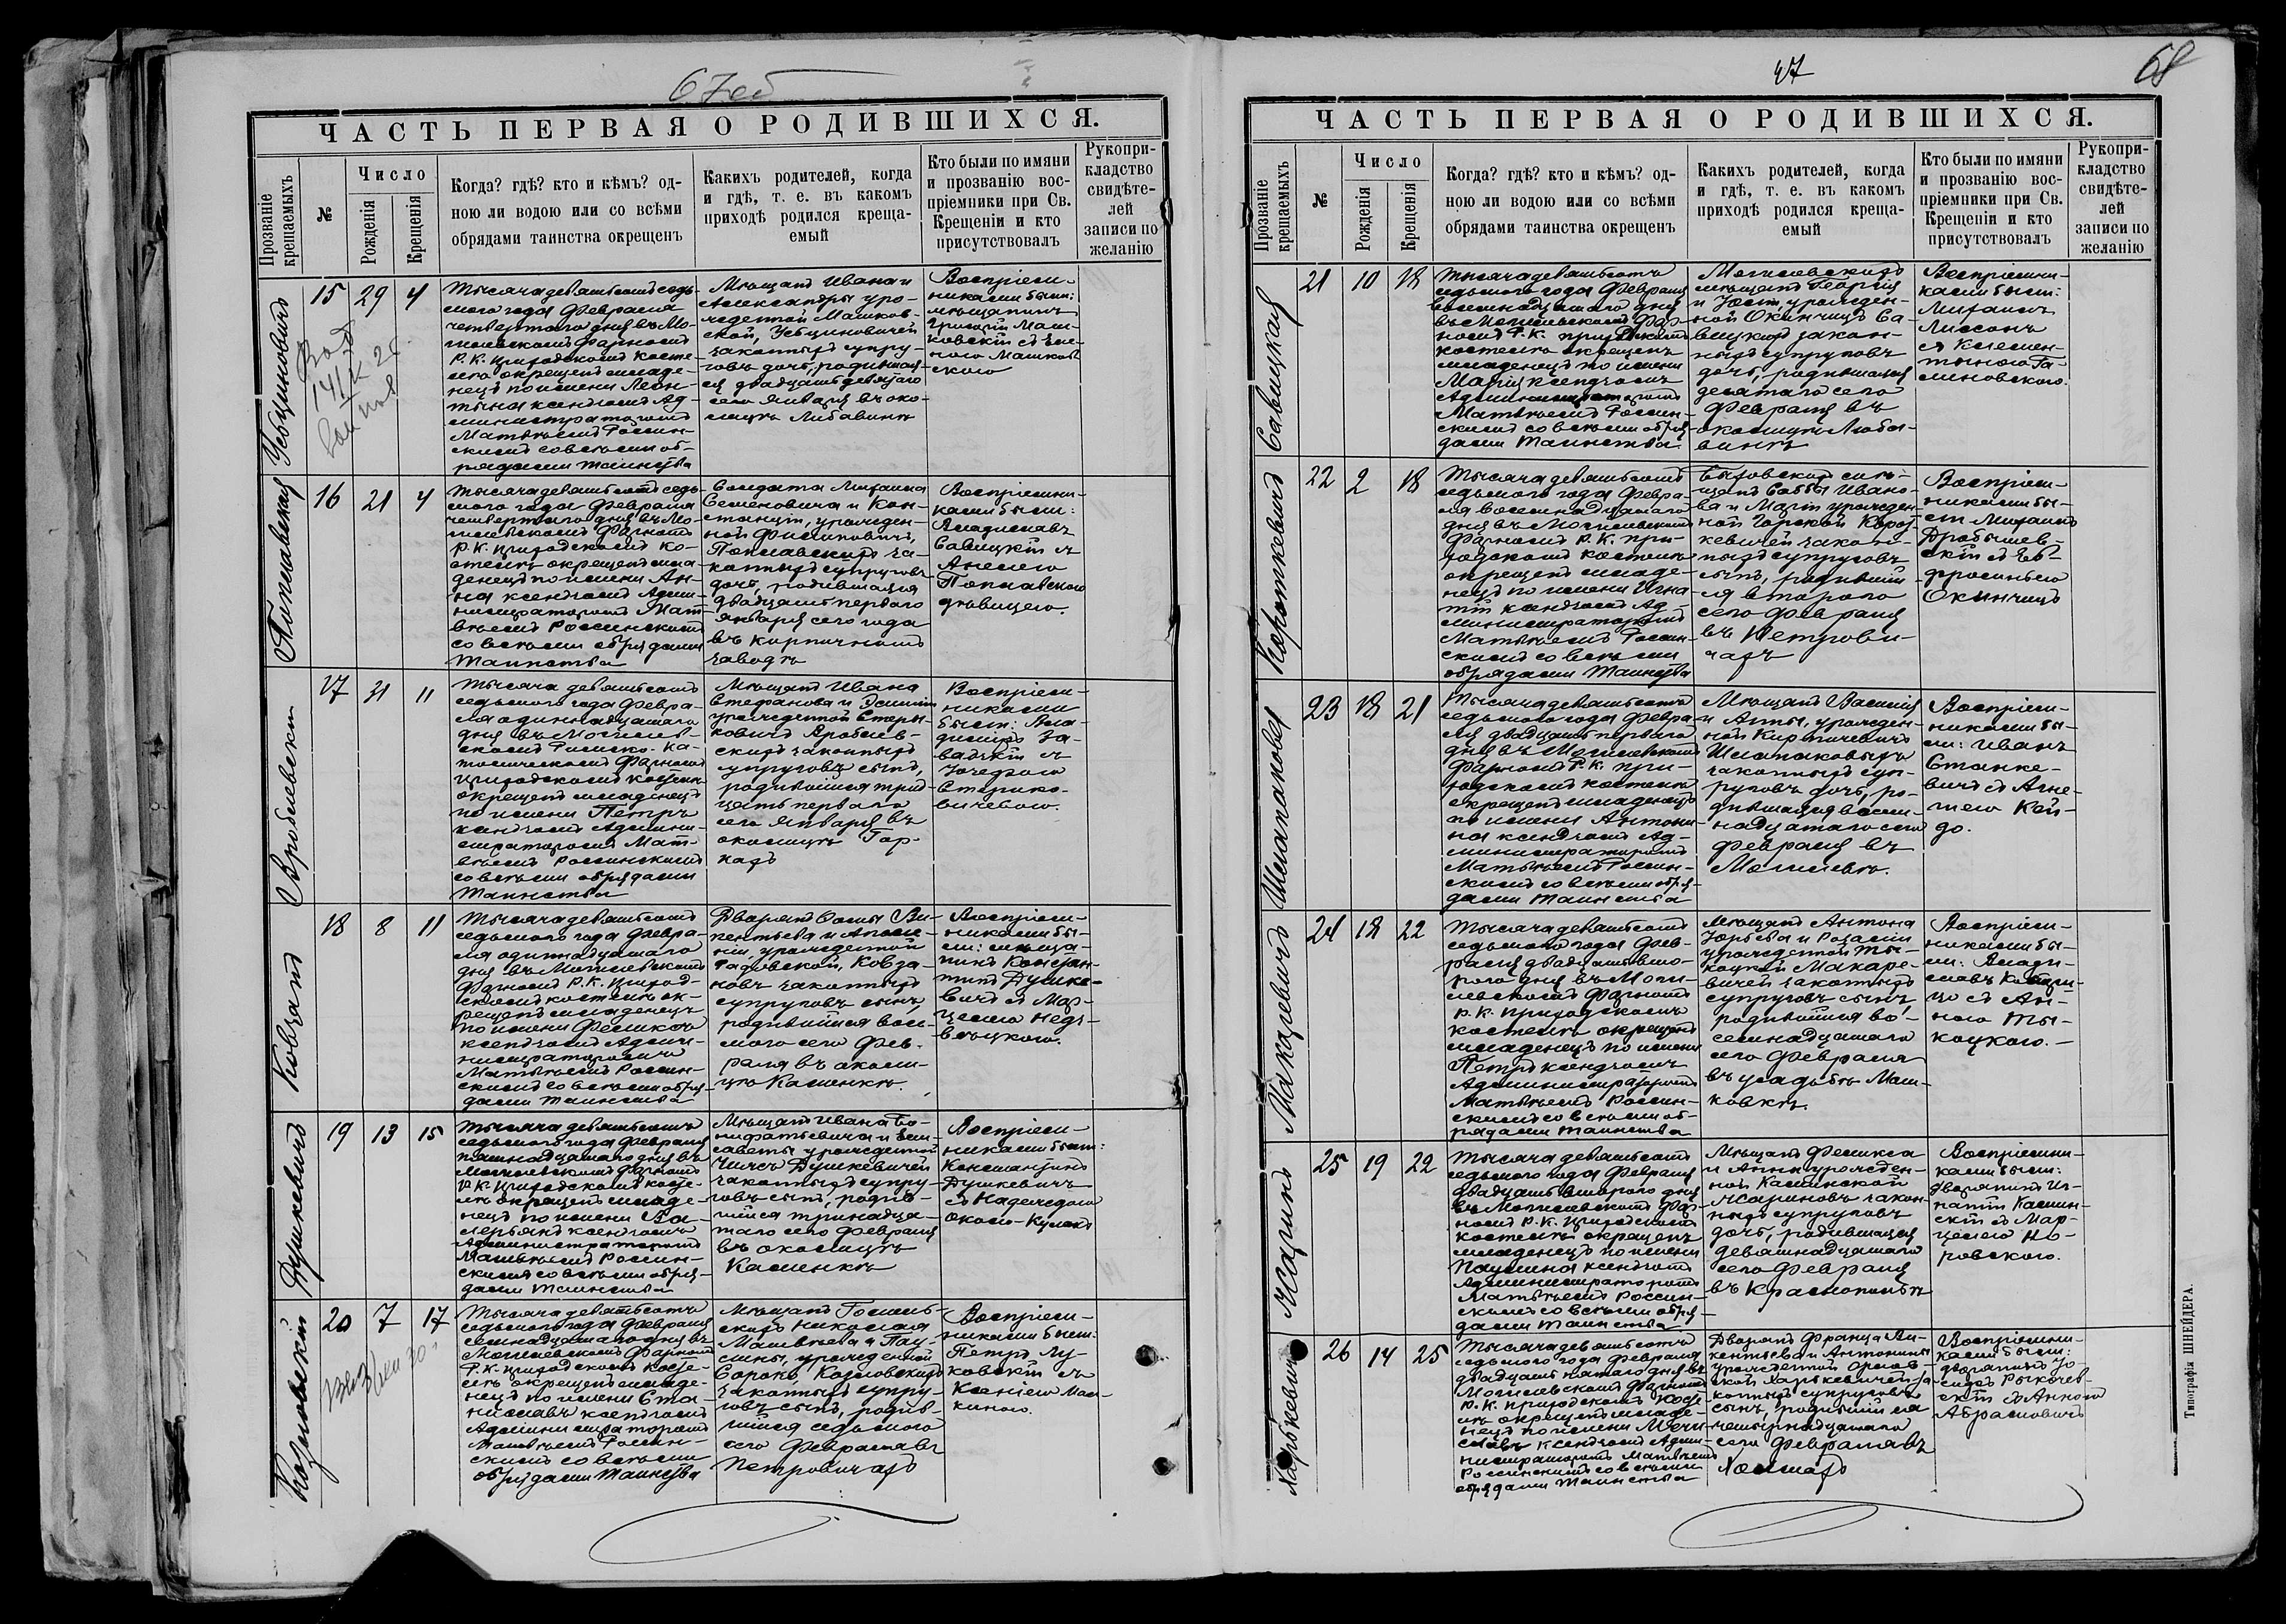 67об
ЧАСТЬ ПЕРВАЯ О РОДИВШИХСЯ.
Прозваніе крещаемыхъ
№
Число
Рожденія
Крещенія
Когда? гдѣ? кто и кѣмъ? од-
ною ли водою или со всѣми
обрядами таинства окрещенъ
Каких​ъ родителей, когда
и гдѣ, т. е. въ какомъ
приходѣ родился креща-
емый
Кто были по имяни
и прозванію вос-
пріемники при Св.
Крещеніи и кто
присутствовалъ
Рукопри-
кладство
свидѣте-
лей
записи по
желанію
15 29 4
Тысяча девятьсотъ седь-
мого года Февраля
четвертаго дня въ Мо-
гилевскомъ Фарномъ
Р. К. приходскомъ косте-
лѣ окрещенъ младе-
нецъ по имени Леон-
тина ксендзомъ Ад-
министраторомъ
Матвѣемъ Россин-
скимъ со всѣми об-
рядами таинства
Мѣщанъ Ивана и
Александры уро-
жденной Машков-
ской,
законныхъ супру-
говъ дочь, родившая-
ся двадцать девятаго
сего Января въ око-
лицѣ Любавинѣ
Воспріем-
никами были:
мѣщанинъ
Григорій Маш-
ковскій съ Еле-
ною Машков-
скою
Поплавская
16 21 4
Тысяча девятьсотъ седь-
мого года Февраля
четвертаго дня въ Мо-
гилевскомъ Фарномъ
Р. К. приходскомъ ко-
стелѣ окрещенъ мла-
денецъ по имени Ан-
на ксендзомъ Адми-
нистраторомъ Мат-
вѣемъ Россинскимъ
со всѣми обрядами
таинства
Солдата Михаила
Семеновича и Кон-
станціи, урожден-
ной Филиповичъ,
Поплавскихъ за-
конныхъ супруговъ
дочь, родившаяся
двадцать перваго
Января сего года
въ кирпичномъ
заводѣ
Воспріемни-
ками были:
Владиславъ
Савицкій съ
Анелею
Поплавскою
дѣвицею.
Вроблевскій
17 31 11
Тысяча девятьсотъ
седьмого года Февра-
ля одиннадцатаго
дня въ Могилев-
скомъ Римско-Ка-
толическомъ Фарномъ
приходскомъ костелѣ
окрещенъ младенецъ
по имени Петръ
ксендзомъ Админи-
страторомъ Мат-
вѣемъ Россинскимъ
со всѣми обрядами
таинства
Мѣщанъ Ивана
Стефанова и Эмиліи
урожденной Стеры-
ковичъ Вроблев-
скихъ законныхъ
супруговъ сынъ,
родившійся трид-
цать перваго
сего Января въ
околицѣ Гор-
кахъ
Воспріем-
никами
были: Вла-
диміръ За-
вадскій съ
Юзефою
Стерико-
вичевою.
Ковзанъ
18 8 11
Тысяча девятьсотъ
седьмого года Февра-
ля одиннадцатаго
дня въ Могилевскомъ
Фарномъ Р. К. приход-
скомъ костелѣ ок-
рещенъ младенецъ
по имени Феликсъ
ксендзомъ Адми-
нистраторомъ
Матвѣемъ Россин-
скимъ со всѣми обря-
дами таинства
Дворянъ Ви-
кентьева и Аполо-
ніи, урожденной
Садовской, Ковза-
новъ законныхъ
супруговъ сынъ,
родившійся вось-
мого сего Фев-
раля въ околи-
цѣ Каменкѣ.
Воспріем-
никами бы-
ли: мѣща-
нинъ Констан-
тинъ Душке-
вичъ съ Мар-
целею Недз-
вѣцкою.
Душкевичъ
19 13 15
Тысяча девятьсотъ
седьмого года Февраля
пятнадцатаго дня въ
Могилевскомъ Фарномъ
Р. К. приходскомъ косте-
лѣ окрещенъ младе-
нецъ по имени Ва-
лерьянъ ксендзомъ
Администраторомъ
Матвѣемъ Россин-
скимъ со всѣми обря-
дами таинства
Мѣщанъ Ивана Бо-
нифатьевича и Ели-
саветы урожденной
Душкевичей
законныхъ супру-
говъ сынъ, родив-
шійся тринадца-
таго сего Февраля
въ околицѣ
Каменкѣ
Воспріем-
никами были:
Константинъ
Душкевичъ
съ Надеждою
Около-Кулакъ
Козловскій
20 7 17
Тысяча девятьсотъ
седьмого года Февраля
семнадцатаго дня въ
Могилевскомъ Фарномъ
Р. К. приходскомъ косте-
лѣ окрещенъ младе-
нецъ по имени Ста-
ниславъ ксендзомъ
Администраторомъ
Матвѣемъ Россин-
скимъ со всѣми
обрядами таинства
Мѣщанъ Гомель-
скихъ Николая
Матвѣева и Пау-
лины, урожденной
Сороко, Козловскихъ
законныхъ супру-
говъ сынъ, родив-
шійся седьмого
сего Февраля въ
Петровичахъ
Воспріем-
никами были:
Петръ Лу-
ковскій съ
Ксеніею
47
68
ЧАСТЬ ПЕРВАЯ О РОДИВШИХСЯ.
Прозваніе крещаемыхъ
№
Число
Рожденія
Крещенія
Когда? гдѣ? кто и кѣмъ? од-
ною ли водою или со всѣми
обрядами таинства окрещенъ
Какихъ родителей, когда
и гдѣ, т. е. въ какомъ
приходѣ родился креща-
емый
Кто были по имяни
и прозванію вос-
пріемники при Св.
Крещеніи и кто
присутствовалъ
Рукопри-
кладство
свидѣте-
лей
записи по
желанію
Савицкая
21 10 18
Тысяча девятьсотъ
седьмого года Февраля
восемнадцатаго дня
въ Могилевскомъ Фар-
номъ Р. К. приходскомъ
костелѣ окрещенъ
младенецъ по имени
Марія ксендзомъ
Администраторомъ
Матвѣемъ Россин-
скимъ со всѣми обря-
дами таинства
Могилевскихъ
мѣщанъ Георгія
и урожден-
ной Окинчицъ Са-
вицкихъ закон-
ныхъ супруговъ
дочь, родившаяся
десятаго сего
Февраля въ
околицѣ Люба-
винѣ
Воспріемни-
ками были:
Михаилъ
Лиссонъ
съ Клемен-
тиною Га-
линовскою.
Короткевичъ
22 2 18
Тысяча девятьсотъ
седьмого года Февра-
ля восемнадцатаго
дня въ Могилевскомъ
Фарномъ Р. К. при-
ходскомъ костелѣ
окрещенъ младе-
нецъ по имени Игна-
тій ксендзомъ Ад-
министраторомъ
Матвѣемъ Россин-
скимъ со всѣми
обрядами таинства
Быховскихъ мѣ-
щанъ Саввы Ивано-
ва и Маріи урожден-
ной Горской Корот-
кевичей закон-
ныхъ супруговъ
сынъ, родивший-
ся второго
сего Февраля
въ Петрови-
чахъ
Воспріем-
никами бы-
ли Михаилъ
Дробышев-
скій съ Ев-
фросиньею
Окинчицъ
Шпаковская
23 18 21
Тысяча девятьсотъ
седьмого года Февра-
ля двадцать перваго
дня въ Могилевскомъ
Фарномъ Р. К. при-
ходскомъ костелѣ
окрещенъ младенецъ
по имени Антони-
на ксендзомъ Ад-
министраторомъ
Матвѣемъ Россин-
скимъ со всѣми обря-
дами таинства
Мѣщанъ Василія
и Анны, урожден-
ной Кирпичевичъ
законныхъ суп-
руговъ дочь, ро-
дившаяся восем-
надцатаго сего
Февраля въ
Могилевѣ.
Воспріем-
никами бы-
ли: Иванъ
Станке-
вичъ съ Агне-
шею Кей-
до.
Макаревичъ
24 18 22
Тысяча девятьсотъ
седьмого года Фев-
раля двадцать вто-
рого дня въ Моги-
левскомъ Фарномъ
Р. К. приходскомъ
костелѣ окрещенъ
младенецъ по имени
Петръ ксендзомъ
Администраторомъ
Матвѣемъ Россин-
скимъ со всѣми об-
рядами таинства
Мѣщанъ Антона
Юрьева и Розаліи
урожденной Ты-
коцкой Макаре-
вичей законныхъ
супруговъ сынъ,
родившійся во-
семнадцатаго
сего Февраля
въ усадьбѣ Маш-
ковкѣ.
Воспріем-
никами бы-
ли: Влади-
славъ
съ Ан-
ною Ты-
коцкою.
Жаринъ
25 19 22
Тысяча девятьсотъ
седьмого года Февраля
двадцать второго дня
въ Могилевскомъ Фар-
номъ Р. К. приходскомъ
костелѣ окрещенъ
младенецъ по имени
Паулина ксендзомъ
Администраторомъ
Матвѣемъ Россин-
скимъ со всѣми обря-
дами таинства
Мѣщанъ Феликса
и Анны урожден-
ной Каминской
Жариновъ закон-
ныхъ супруговъ
дочь, родившаяся
девятнадцатаго
сего Февраля
въ Краснополье
Воспріемни-
ками были:
дворянинъ Иг-
натій Камин-
скій съ Мар-
целею Но-
ровскою.
Харькевичъ
26 14 25
Тысяча девятьсотъ
седьмого года Февраля
двадцать пятаго дня въ
Могилевскомъ Фарномъ
Р. К. приходскомъ косте-
лѣ окрещенъ младе-
нецъ по имени Мечи-
славъ ксендзомъ Адми-
нистраторомъ Матвѣемъ
Россинскимъ со всѣми
обрядами таинства
Дворянъ Франца Ви-
кентьева и Антонины
урожденной Орлов-
ской Харькевичей за-
конныхъ супруговъ
сынъ, родившійся
четырнадцатаго
сего Февраля въ
Холмахъ
Воспріемни-
ками были:
дворянинъ Іо-
сифъ
съ Анною
Абрамовичъ
Типографія ШНЕЙДЕРА.